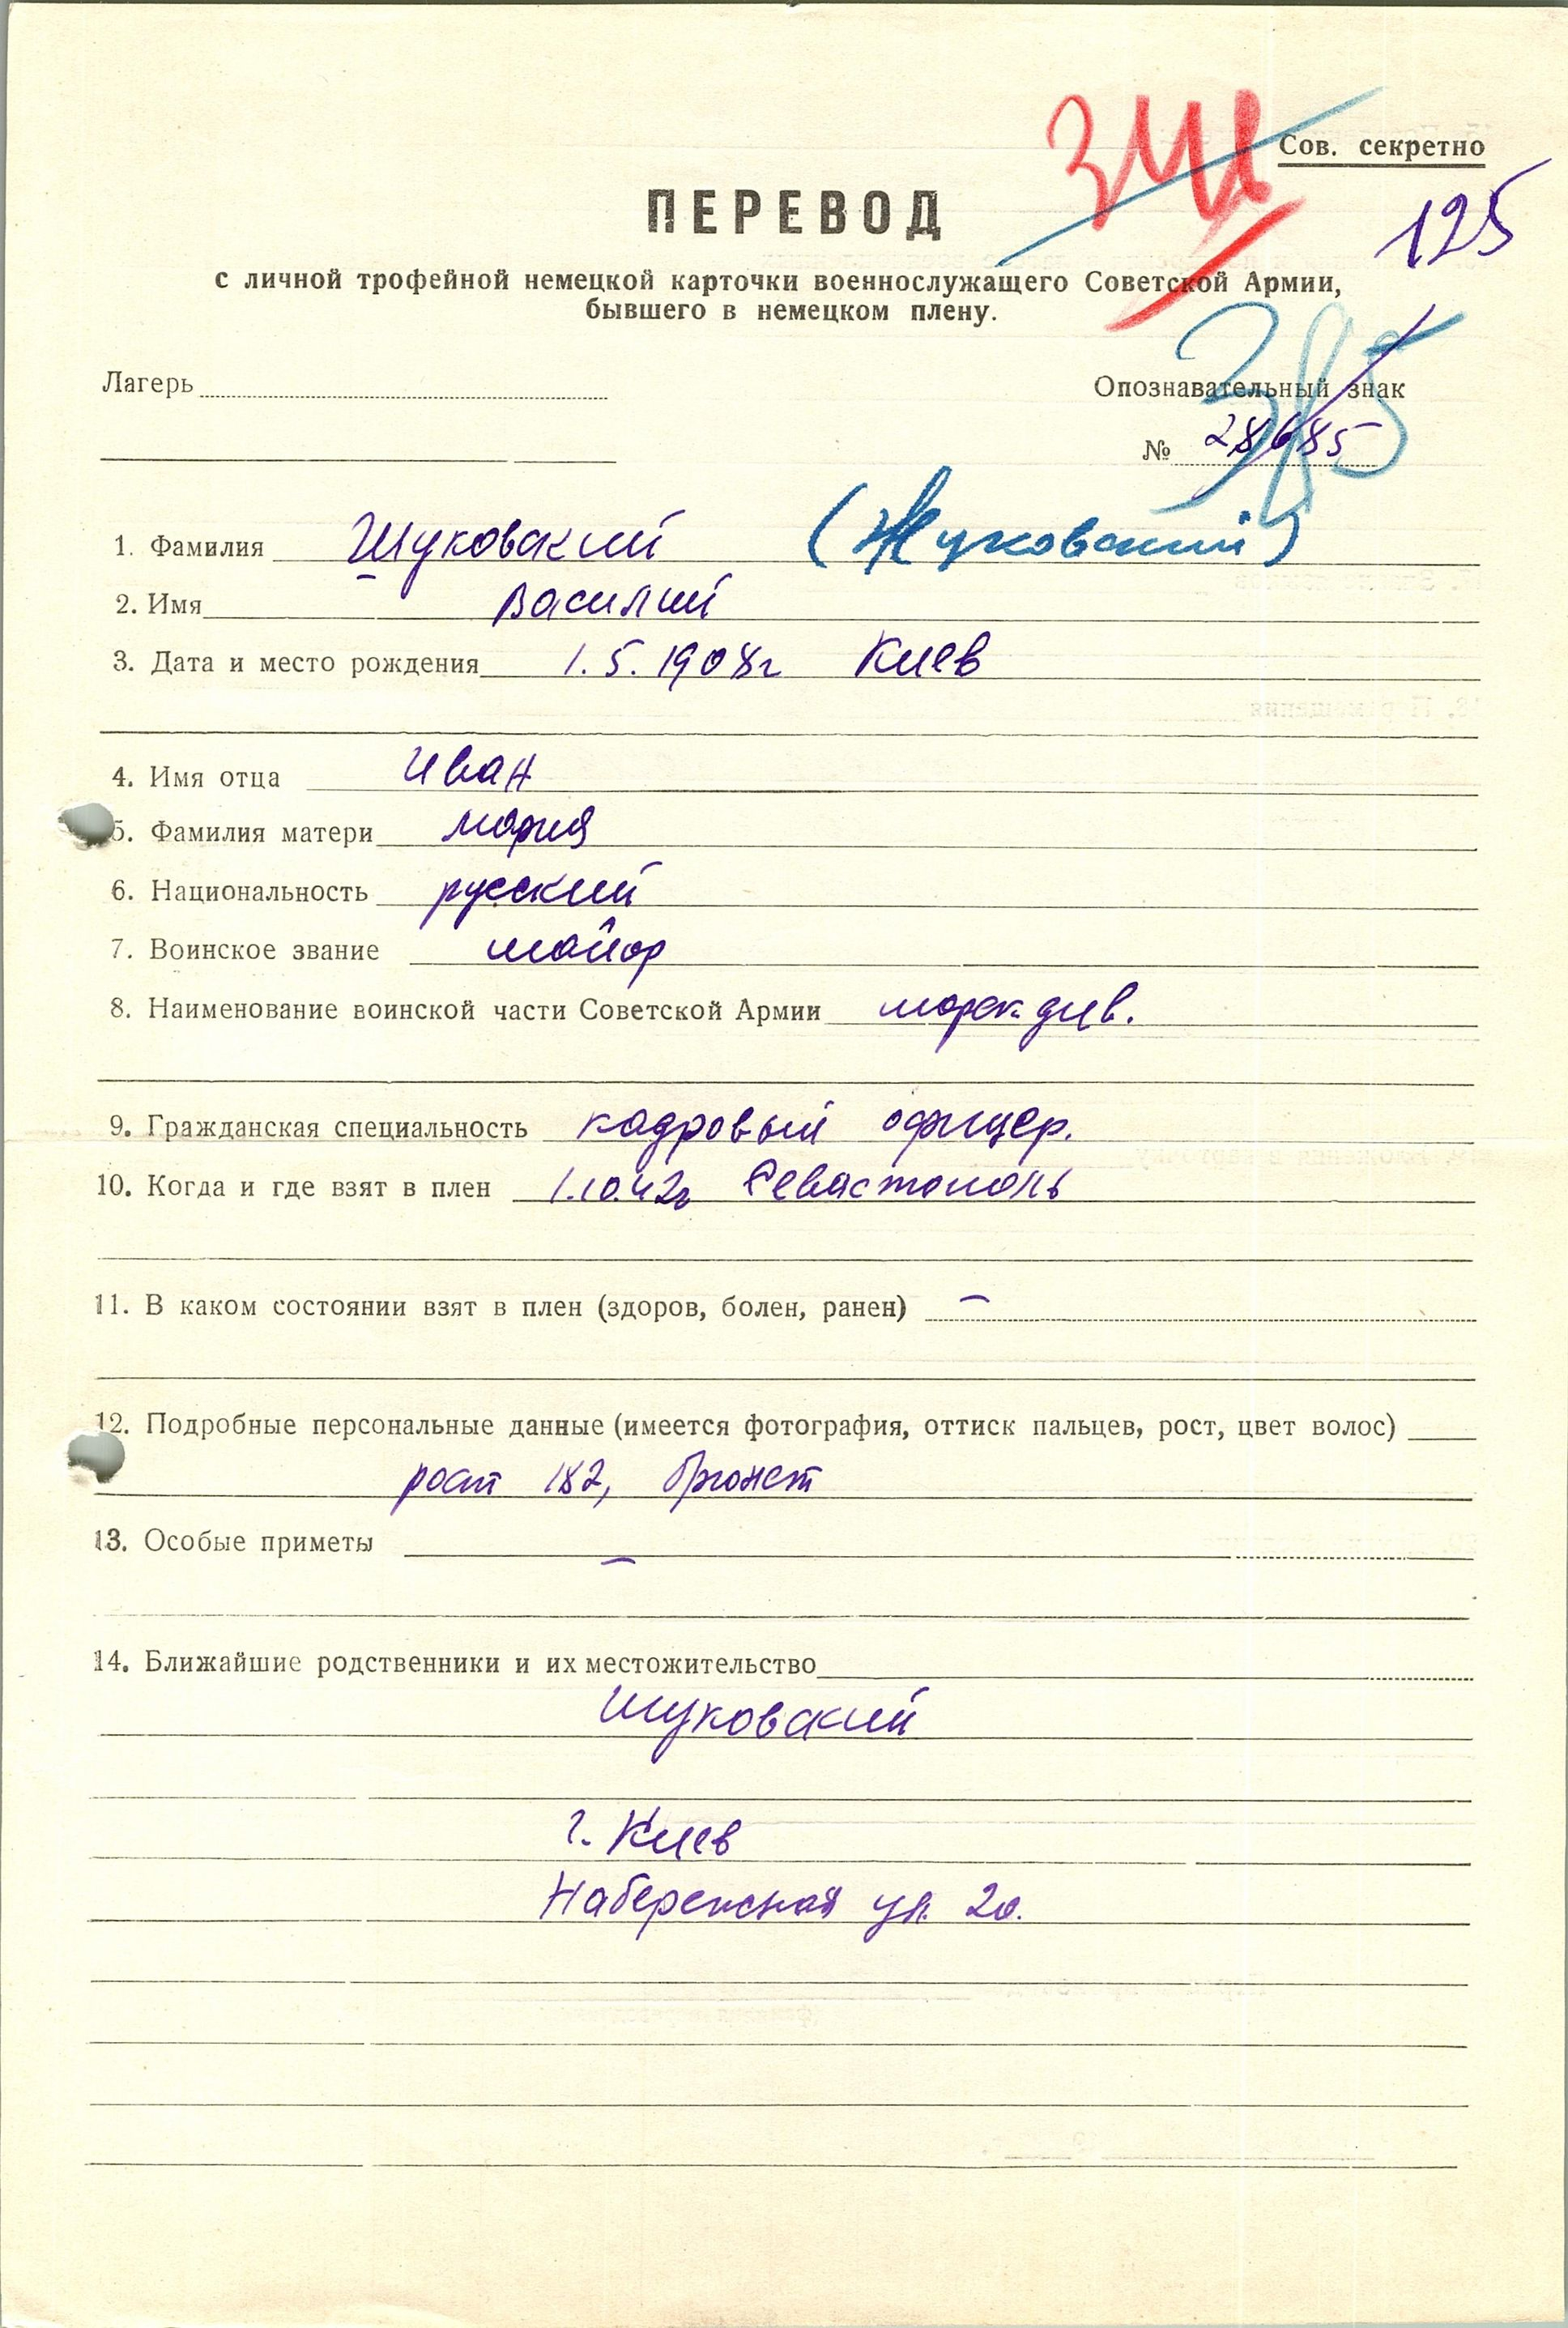 Сов. секретно
125
ПЕРЕВОД
с личной трофейной немецкой карточки военнослужащего Советской Армии,
бывшего в немецком плену.
Лагерь
Опознавательный знак
№ 28685
1. Фамилия Шуковский (Жуковский)
2. Имя Василий
3. Дата и место рождения 1.5.1908г Киев
4. Имя отца Иван
5. Фамилия матери Мария
6. Национальность русский
7. Воинское звание майор
8. Наименование воинской части Советской Армии морск. див.
9. Гражданская специальность кадровый офицер.
10. Когда и где взят в плен 1.10.42г Севастополь
11. В каком состоянии взят в плен (здоров, болен, ранен) —
12. Подробные персональные данные (имеется фотография, оттиск пальцев, рост, цвет волос)
рост 182, брюнет
13. Особые приметы —
14. Ближайшие родственники и их местожительство
Шуковский
г. Киев
Набережная ул. 20.